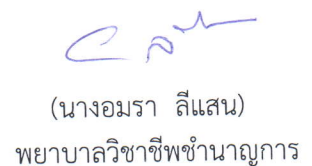 (นางอมรา ลีแสน)
พยาบาลวิชาชีพชำนาญการ